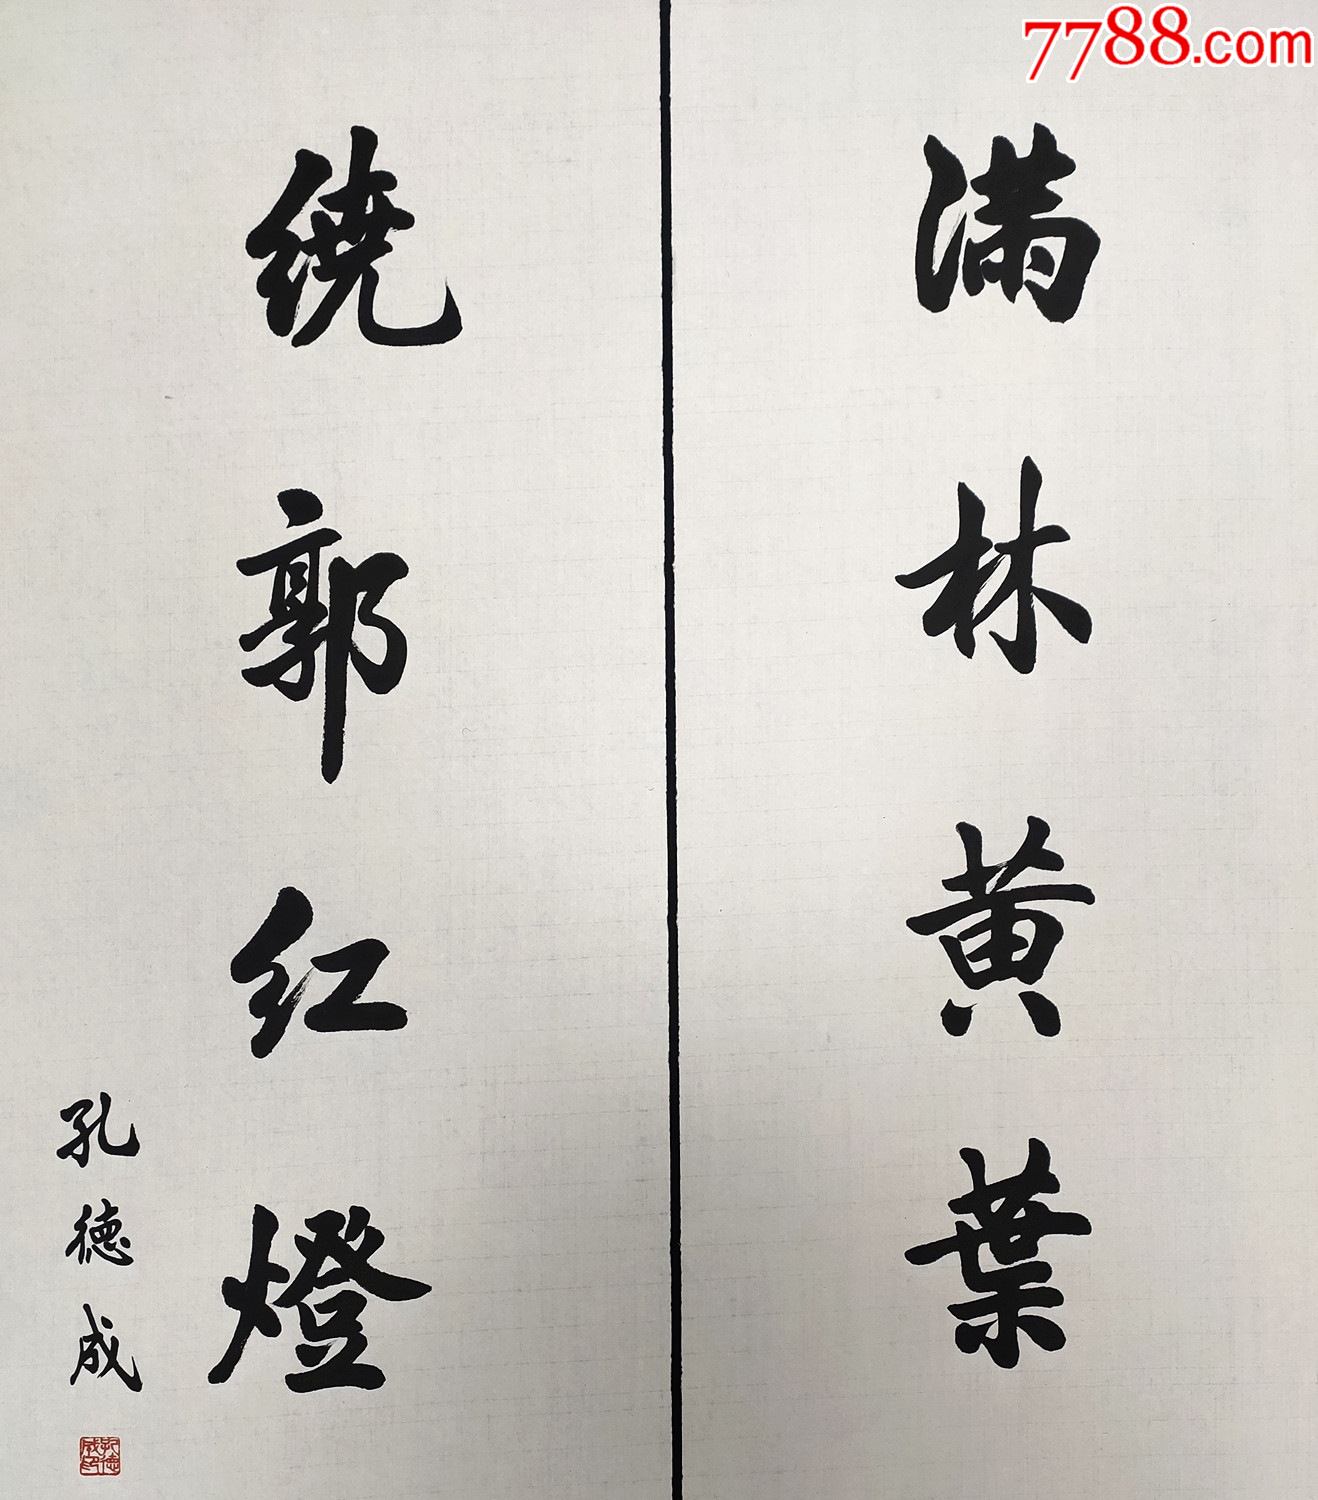 7788.com
满林黄葉
绕郭红燈
孔德成
孔德成印